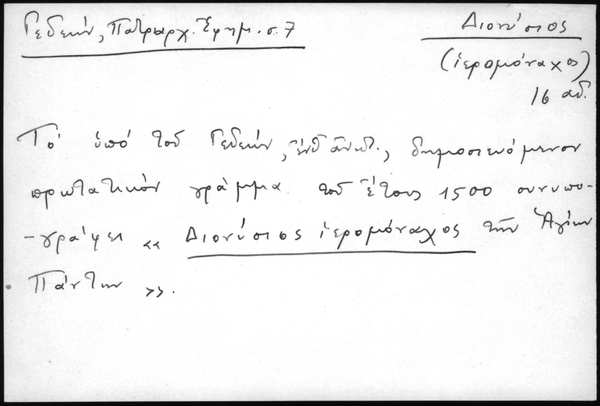 Γεδεών, Πατριαρχ. Ἐφημ. σ. 7
Διονύσιος
(ἱερομόναχος)
16 αἰ.
Τὸ ὑπό τοῦ Γεδεών, ἔνθ' ἀνωτ., δημοσιευόμενον
πρωτατικὸν γράμμα τοῦ ἔτους 1500 συνυπο-
-γράφει «Διονύσιος ἱερομόναχος τῶν Ἁγίων
Πάντων».